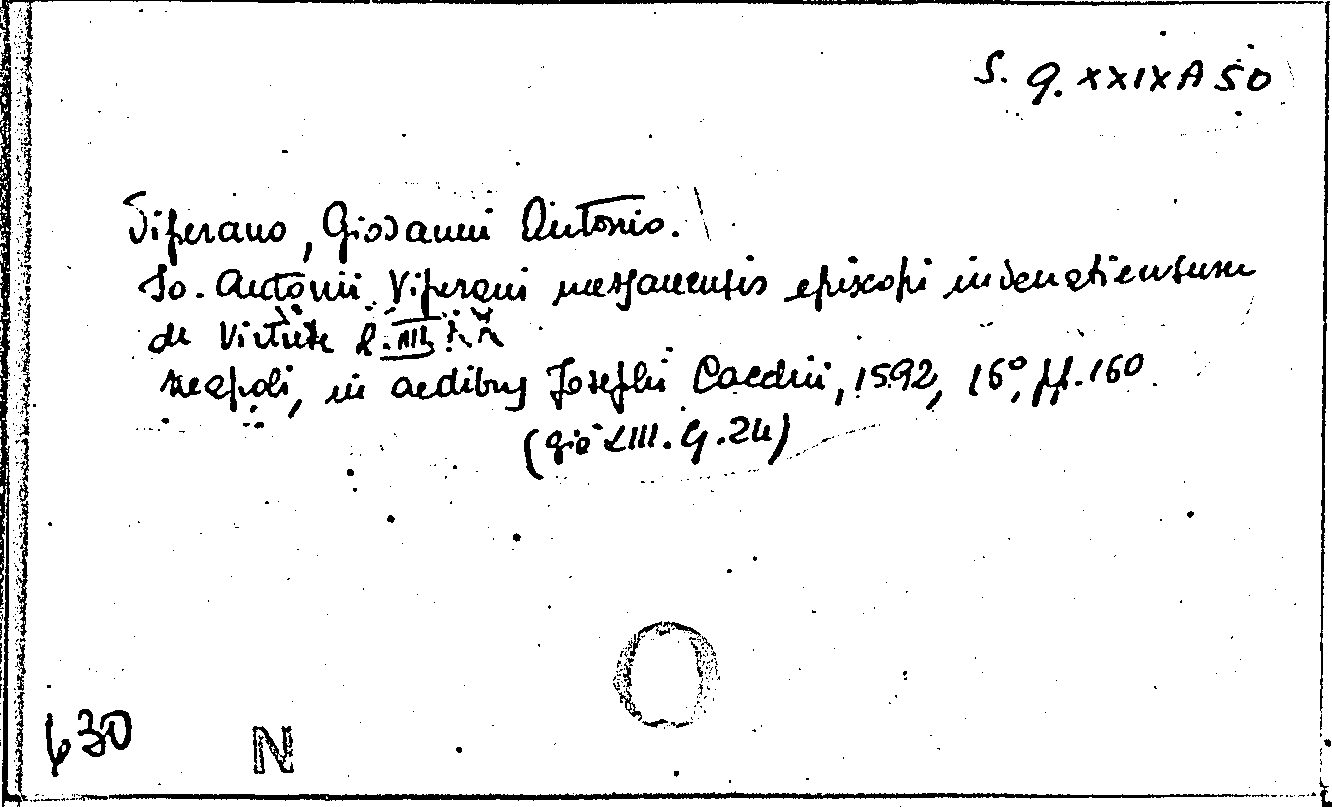 S. q. XXIX A 50
Viperano, Giovanni Antonio.
Io. Antonii Viperani messanensis episcopi iuvenatiensium
de Virtute l. III
Neapoli, in aedibus Josephi Cacchii, 1592, 16°, pp. 160
(già LIII. G. 24)
630
N